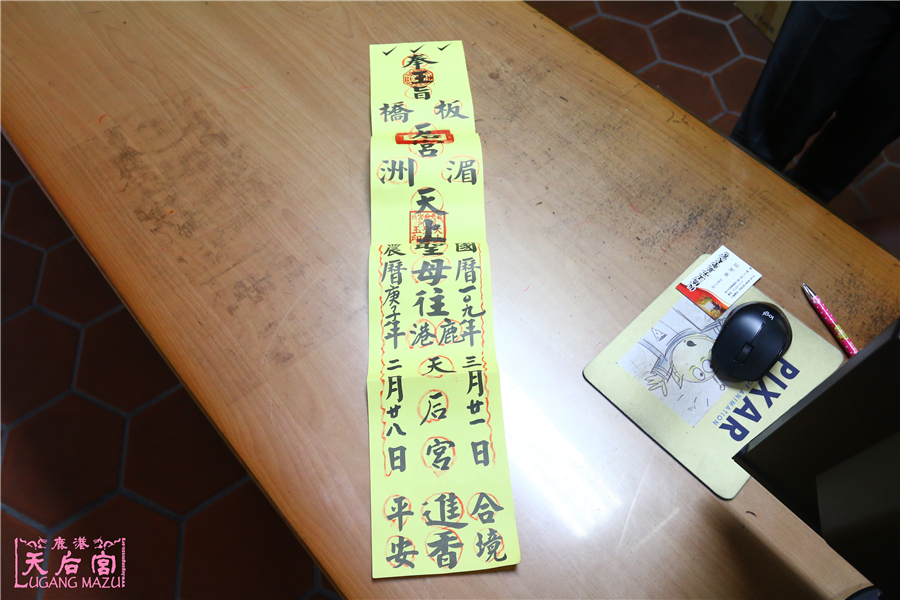 奉玉旨
板橋
后宮
湄洲
天上聖母往
鹿港
天后宮
進香
國曆一〇九年三月廿一日
農曆庚子年二月廿八日
合境
平安
PIXAR
ANIMATION
logi
鹿港
天后宮
LUGANG MAZU